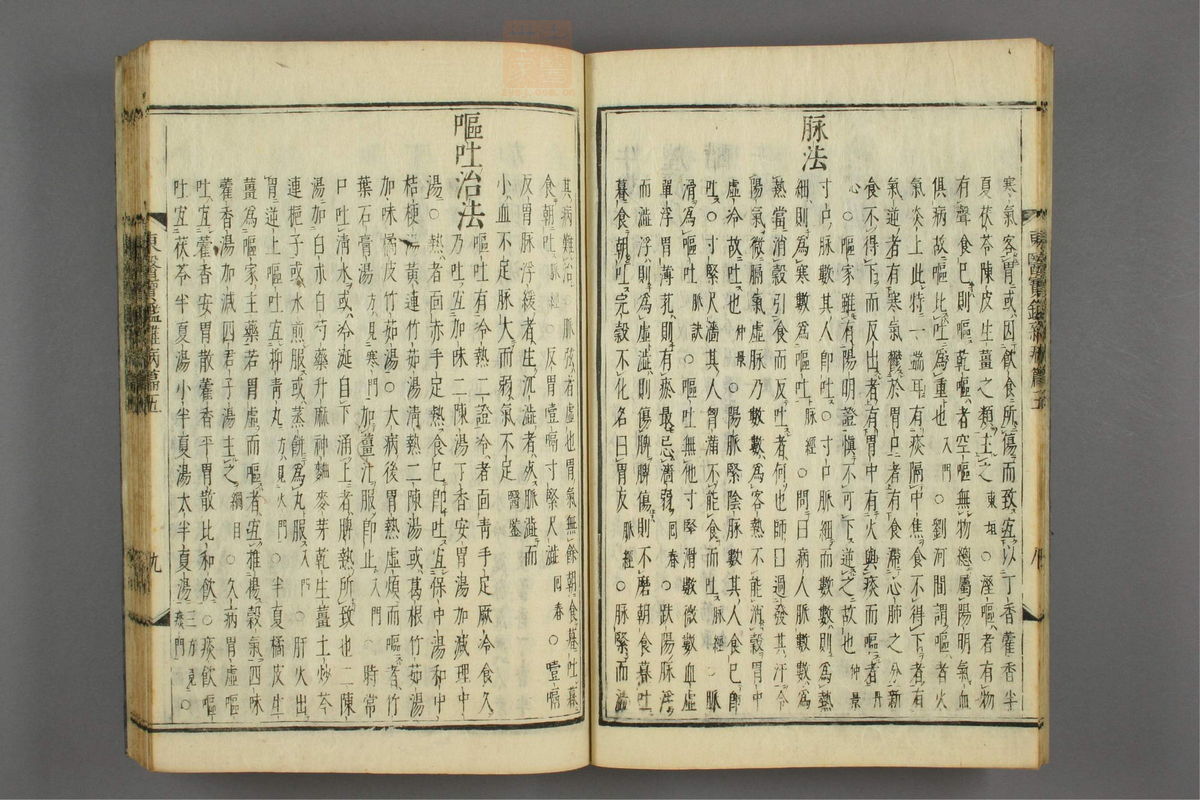 寒氣客胃或因飲食所傷而致宜以丁香藿香半
夏茯苓陳皮生薑之類主之東垣○嘔者有物
有聲食已則嘔乾嘔者空嘔無物總屬陽明氣血
俱病故嘔比吐爲重也入門○劉河間謂嘔者火
氣炎上此特一端耳有痰隔中焦食不得下者有
氣逆者有寒氣鬱於胃口者有食滯心肺之分新
食不得下而反出者有胃中有火與痰而嘔者丹
心○嘔家雖有陽明證愼不可下逆之故也仲景
脉法
寸口脉數其人卽吐○寸口脉細而數數則爲熱
細則爲寒數爲嘔吐脉經○問曰病人脉數數爲
熱當消穀引食而反吐者何也師曰過發其汗令
陽氣微膈氣虛脉乃數數爲客熱不能消穀胃中
虛冷故吐也仲景○陽脉緊陰脉數其人食已卽
吐○寸緊尺濇其人胷滿不能食而吐脉經○脉
滑爲嘔吐脉訣○嘔吐無他寸緊滑數微數血虛
單浮胃薄芤則有瘀最忌濇弱回春○趺陽脉浮
而濇浮則爲虛濇則傷脾脾傷則不磨朝食暮吐
暮食朝吐完穀不化名曰胃反脉經○脉緊而濇
東醫寶鑑雜病篇五
八
其病難治○脉弦者虛也胃氣無餘朝食暮吐暮
食朝吐脉經○反胃噎嗝寸緊尺濇回春○噎嗝
反胃脉浮緩者生沉濇者死脉濇而
小血不足脉大而弱氣不足醫鑑
嘔吐治法
嘔吐有冷熱二證冷者面靑手足厥冷食久
乃吐宜加味二陳湯丁香安胃湯加減理中
湯○熱者面赤手足熱食已卽吐宜保中湯和中
桔梗湯黃連竹茹湯淸熱二陳湯或葛根竹茹湯
加味橘皮竹茹湯○大病後胃熱虛煩而嘔者竹
葉石膏湯方見寒門加薑汁服卽止入門○時常
口吐淸水或冷涎自下涌上者脾熱所致也二陳
湯加白朮白芍藥升麻神麴麥芽乾生薑土炒芩
連梔子或水煎服或蒸餠爲丸服入門○肝火出
胃逆上嘔吐宜抑靑丸方見火門○半夏橘皮生
薑爲嘔家主藥若胃虛而嘔者宜推揚穀氣四味
藿香湯加減四君子湯主之綱目○久病胃虛嘔
吐宜藿香安胃散藿香平胃散比和飮○痰飮嘔
吐宜茯苓半夏湯小半夏湯大半夏湯三方見痰門○
東醫寶鑑雜病篇五
九